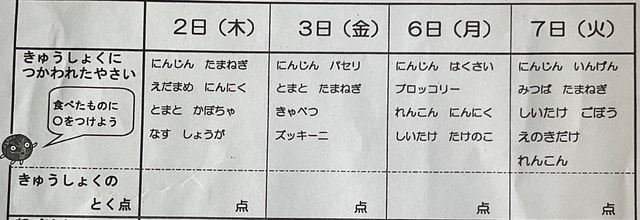 2日（木） 3日（金） 6日（月） 7日（火）
きゅうしょくに
つかわれたやさい
食べたものに
〇をつけよう
にんじん たまねぎ
えだまめ にんにく
とまと かぼちゃ
なす しょうが
にんじん パセリ
とまと たまねぎ
きゃべつ
ズッキーニ
にんじん はくさい
ブロッコリー
れんこん にんにく
しいたけ たけのこ
にんじん いんげん
みつば たまねぎ
しいたけ ごぼう
えのきだけ
れんこん
きゅうしょくの
とく点
点 点 点 点